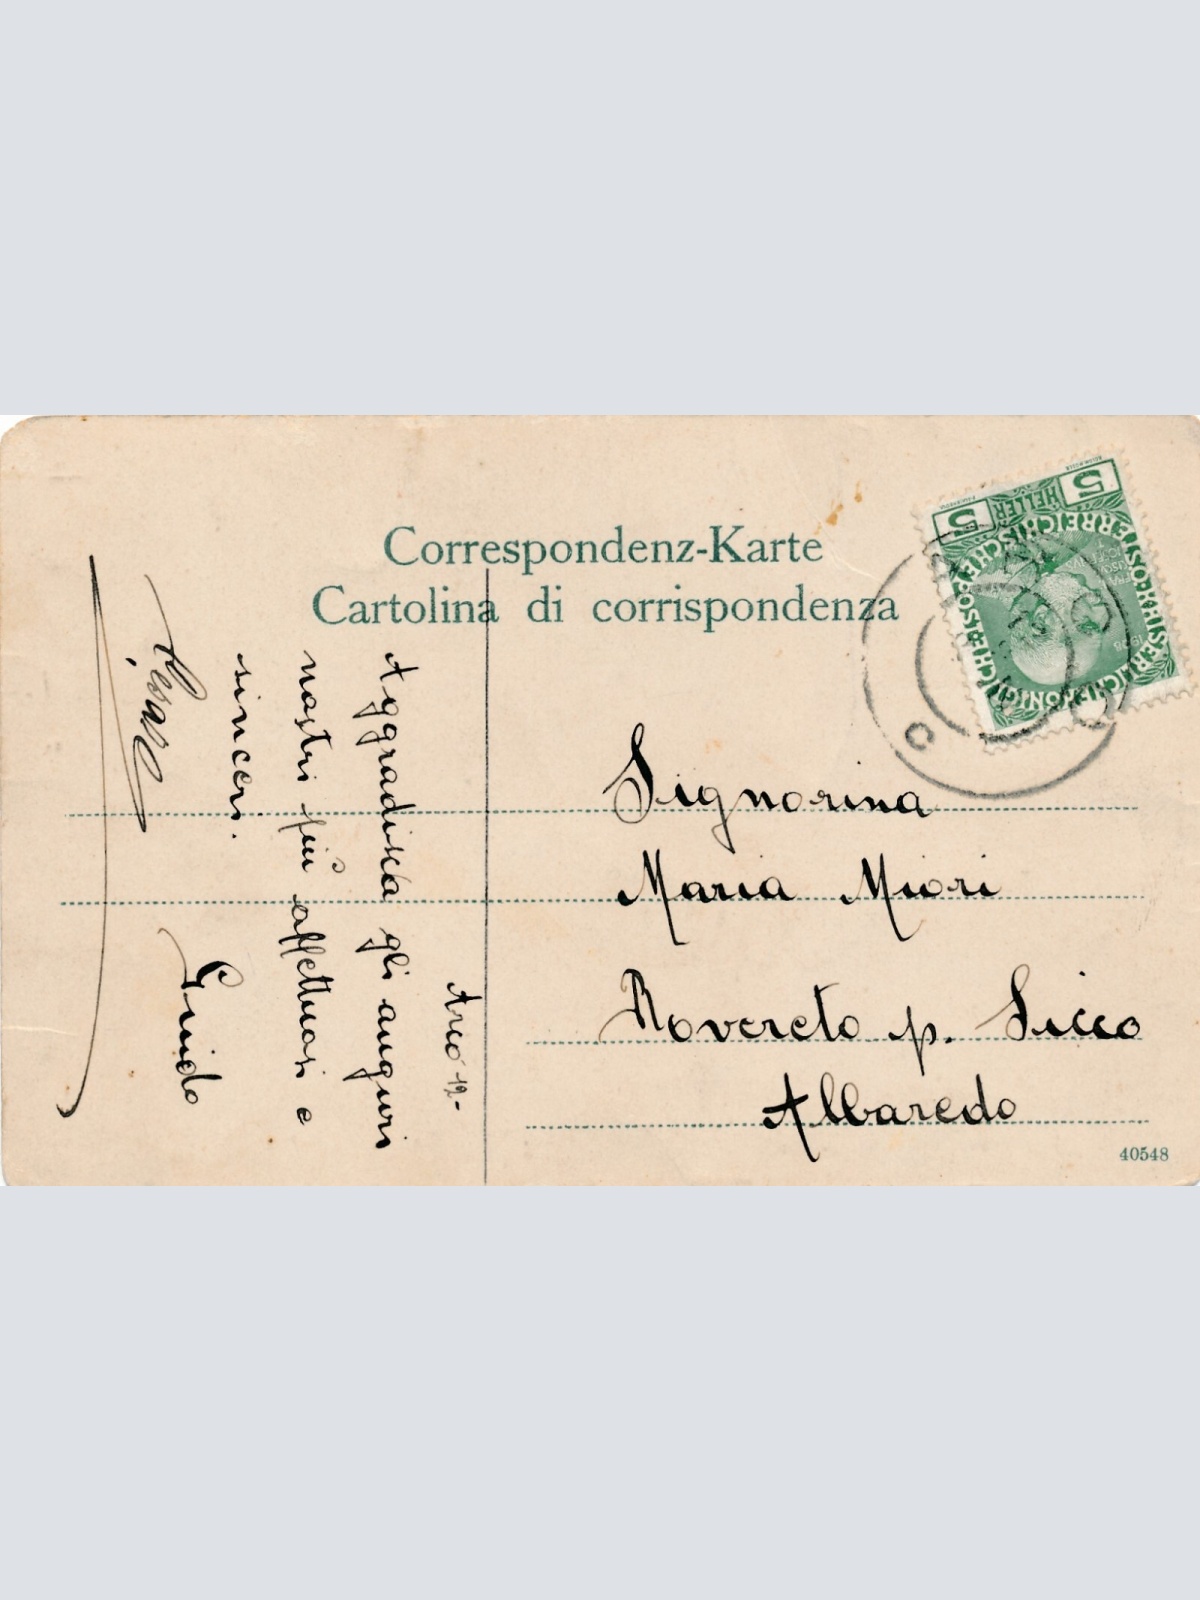 Correspondenz-Karte
Cartolina di corrispondenza
Arco 12-
Aggradisca gli auguri
nostri più affettuosi e
sinceri.
Guido
Cesare
Signorina
Maria Miori
Rovereto p. Sicco
Albaredo
40548
5 HELLER 5
KAISERLICHE KÖNIGLICHE ÖSTERREICHISCHE POST
1908
C